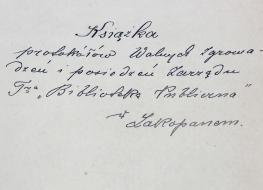 Książka
protokółów Walnych Zgroma-
dzeń i posiedzeń Zarządu
Tva „Biblioteka Publiczna"
w Zakopanem.